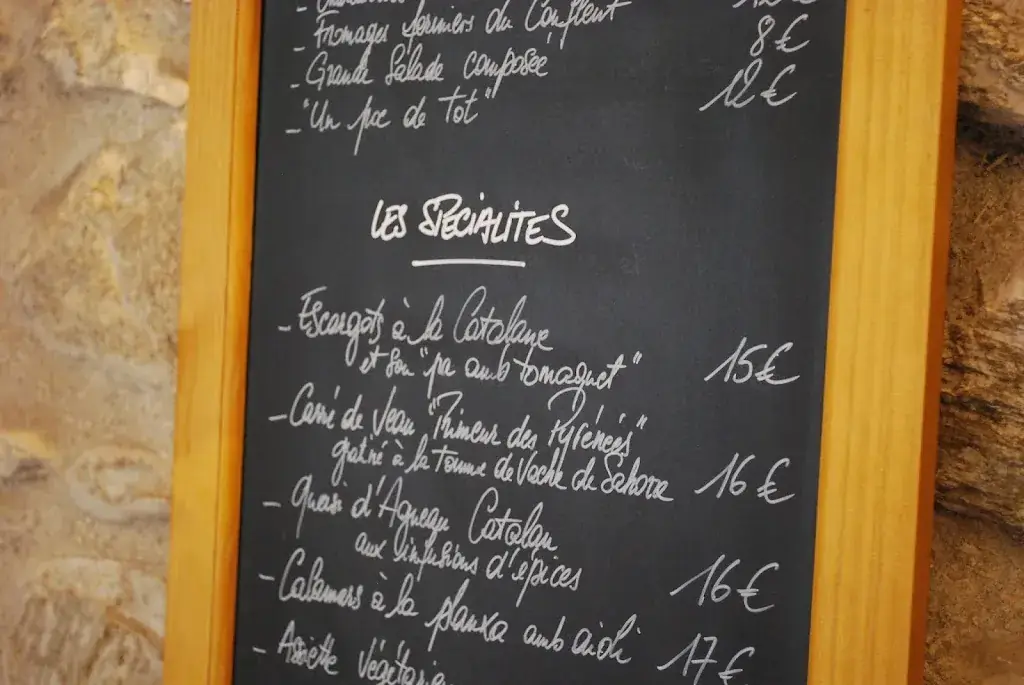 - Fromages fermiers du Conflent
8€
- Grande Salade composée
12€
- "Un poc de tot"
LES SPECIALITES
- Escargots à la Catalane
et son "pa amb tomaquet" 15€
- Carré de Veau "Rimeur des Pyrénées"
gratiné à la tomme de Vache de Sahorre 16€
- Quasi d'Agneau Catalan
aux infusions d'épices 16€
- Calamars à la planxa amb aioli 17€
- Assiette